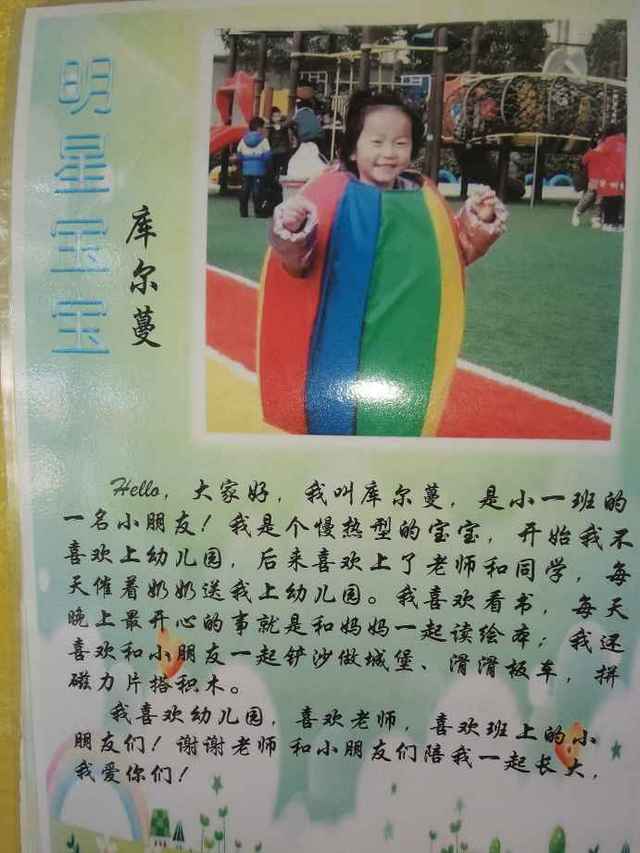 明星宝宝
库尔蔓
Hello，大家好，我叫库尔蔓，是小一班的
一名小朋友！我是个慢热型的宝宝，开始我不
喜欢上幼儿园，后来喜欢上了老师和同学，每
天催着奶奶送我上幼儿园。我喜欢看书，每天
晚上最开心的事就是和妈妈一起读绘本；我还
喜欢和小朋友一起铲沙做城堡、滑滑板车，拼
磁力片搭积木。
我喜欢幼儿园，喜欢老师，喜欢班上的小
朋友们！谢谢老师和小朋友们陪我一起长大，
我爱你们！